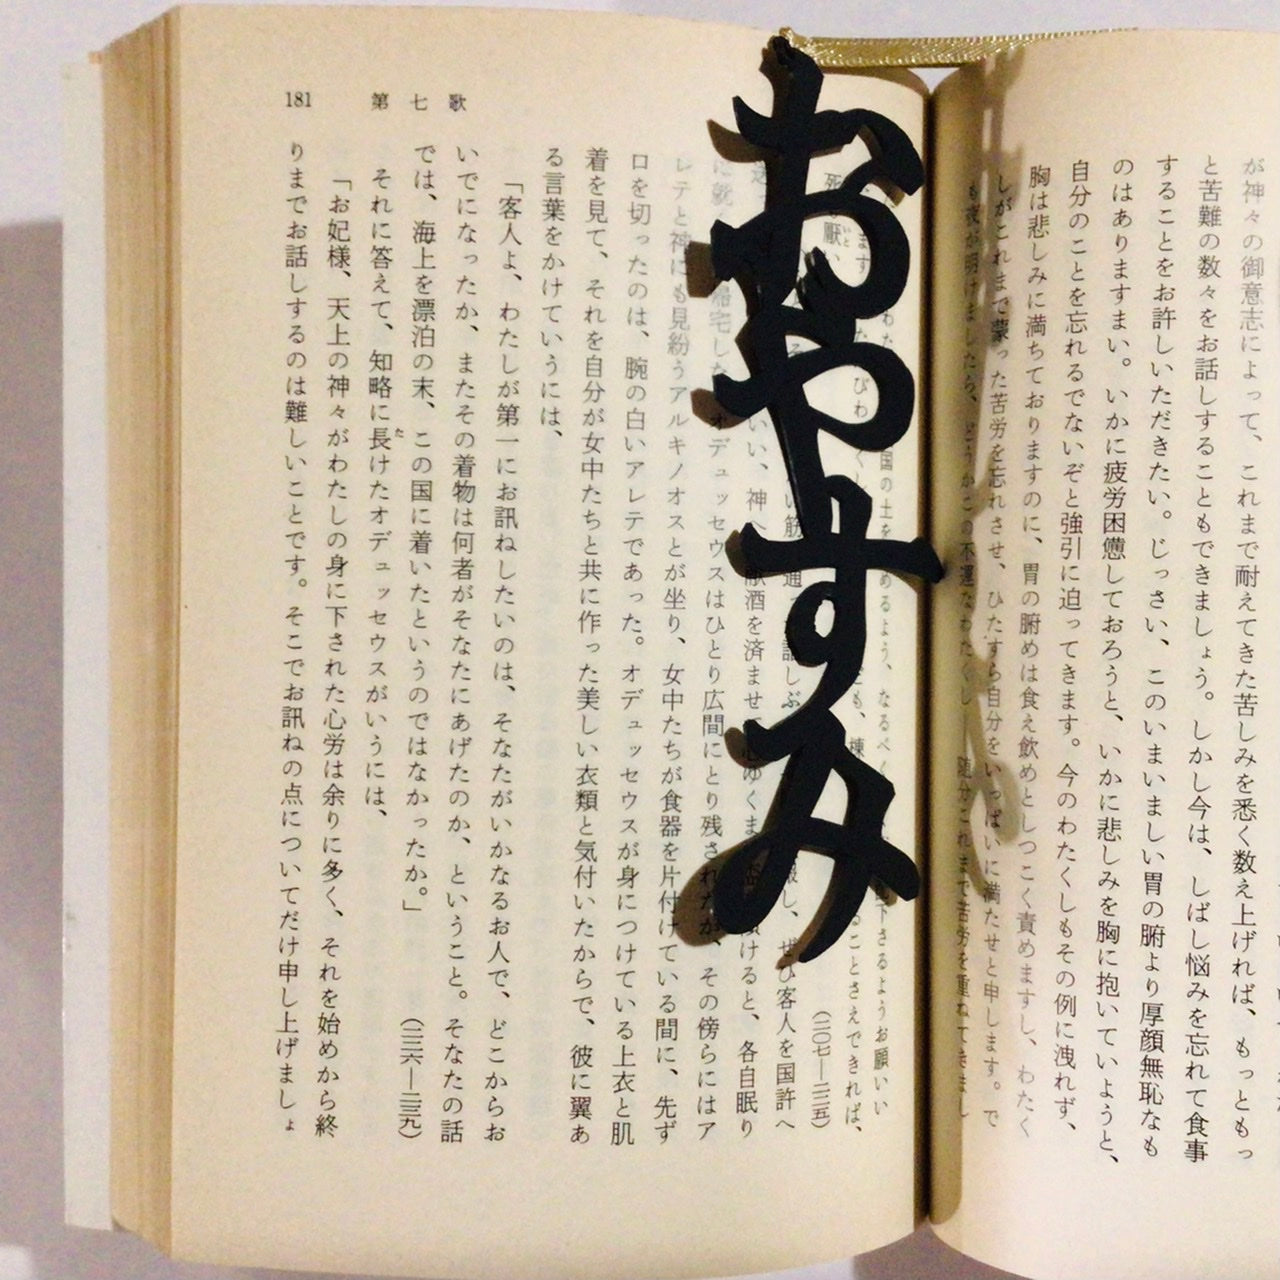 が神々の御意志によって、これまで耐えてきた苦しみを悉く数え上げれば、もっともっ
と苦難の数々をお話しすることもできましょう。しかし今は、しばし悩みを忘れて食事
することをお許しいただきたい。じっさい、このいまいましい胃の腑より厚顔無恥なも
のはありますまい。いかに疲労困憊しておろうと、いかに悲しみを胸に抱いていようと、
自分のことを忘れるでないぞと強引に迫ってきます。今のわたくしもその例に洩れず、
胸は悲しみに満ちておりますのに、胃の腑めは食え飲めとしつこく責めますし、わたく
しがこれまで蒙った苦労を忘れさせ、ひたすら自分をいっぱいに満たせと申します。で
も夜が明けましたら、どうかこの不運なわたくし 随分これまで苦労を重ねてきまし
おやすみ
181 第七歌
国の土を めるよう、なるべく 下さるようお願い
ることさえできれば、
死 厭い
(二〇七―二二五)
報し、ぜひ客人を国許へ
いい、神へ 献酒を済ませ 心ゆくま 傾けると、各自眠り
に就 帰宅した オデュッセウスはひとり広間にとり残されたが、その傍らにはア
レテと神にも見紛うアルキノオスとが坐り、女中たちが食器を片付けている間に、先ず
口を切ったのは、腕の白いアレテであった。オデュッセウスが身につけている上衣と肌
着を見て、それを自分が女中たちと共に作った美しい衣類と気付いたからで、彼に翼あ
る言葉をかけていうには、
「客人よ、わたしが第一にお訊ねしたいのは、そなたがいかなるお人で、どこからお
いでになったか、またその着物は何者がそなたにあげたのか、ということ。そなたの話
では、海上を漂泊の末、この国に着いたというのではなかったか。」
(二三六―二三九)
それに答えて、知略に長けたオデュッセウスがいうには、
「お妃様、天上の神々がわたしの身に下された心労は余りに多く、それを始めから終
りまでお話しするのは難しいことです。そこでお訊ねの点についてだけ申し上げましょ